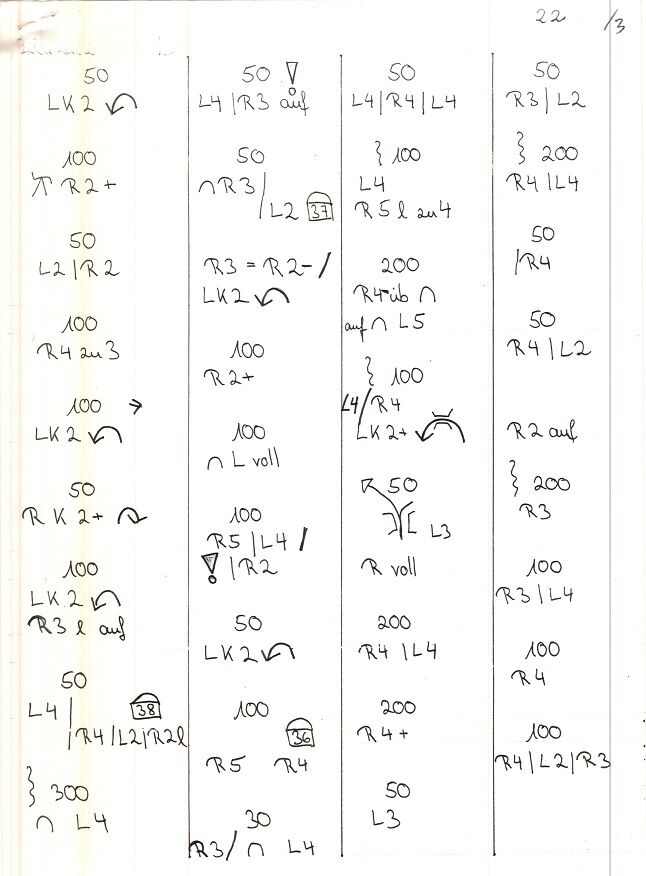 22 /3
50
LK2
100
R2+
50
L2 / R2
100
R4 zu 3
100 →
LK2
50
RK2+
100
LK2
R3 l auf
50
L4 / 38
/ R4 / L2 / R2l
300
∩ L4
50 !
L4 / R3 auf
50
∩ R3 /
/ L2 37
R3 = R2- /
LK2
100
R2+
100
∩ L voll
100
R5 / L4 /
! / R2
50
LK2
100
36
R5 R4
30
R3 / ∩ L4
50
L4 / R4 / L4
100
L4
R5 l zu 4
200
R4 üb ∩
auf ∩ L5
100
L4 / R4
LK2+
50
L3
R voll
200
R4 / L4
200
R4+
50
L3
50
R3 / L2
200
R4 / L4
50
/ R4
50
R4 / L2
R2 auf
200
R3
100
R3 / L4
100
R4
100
R4 / L2 / R3